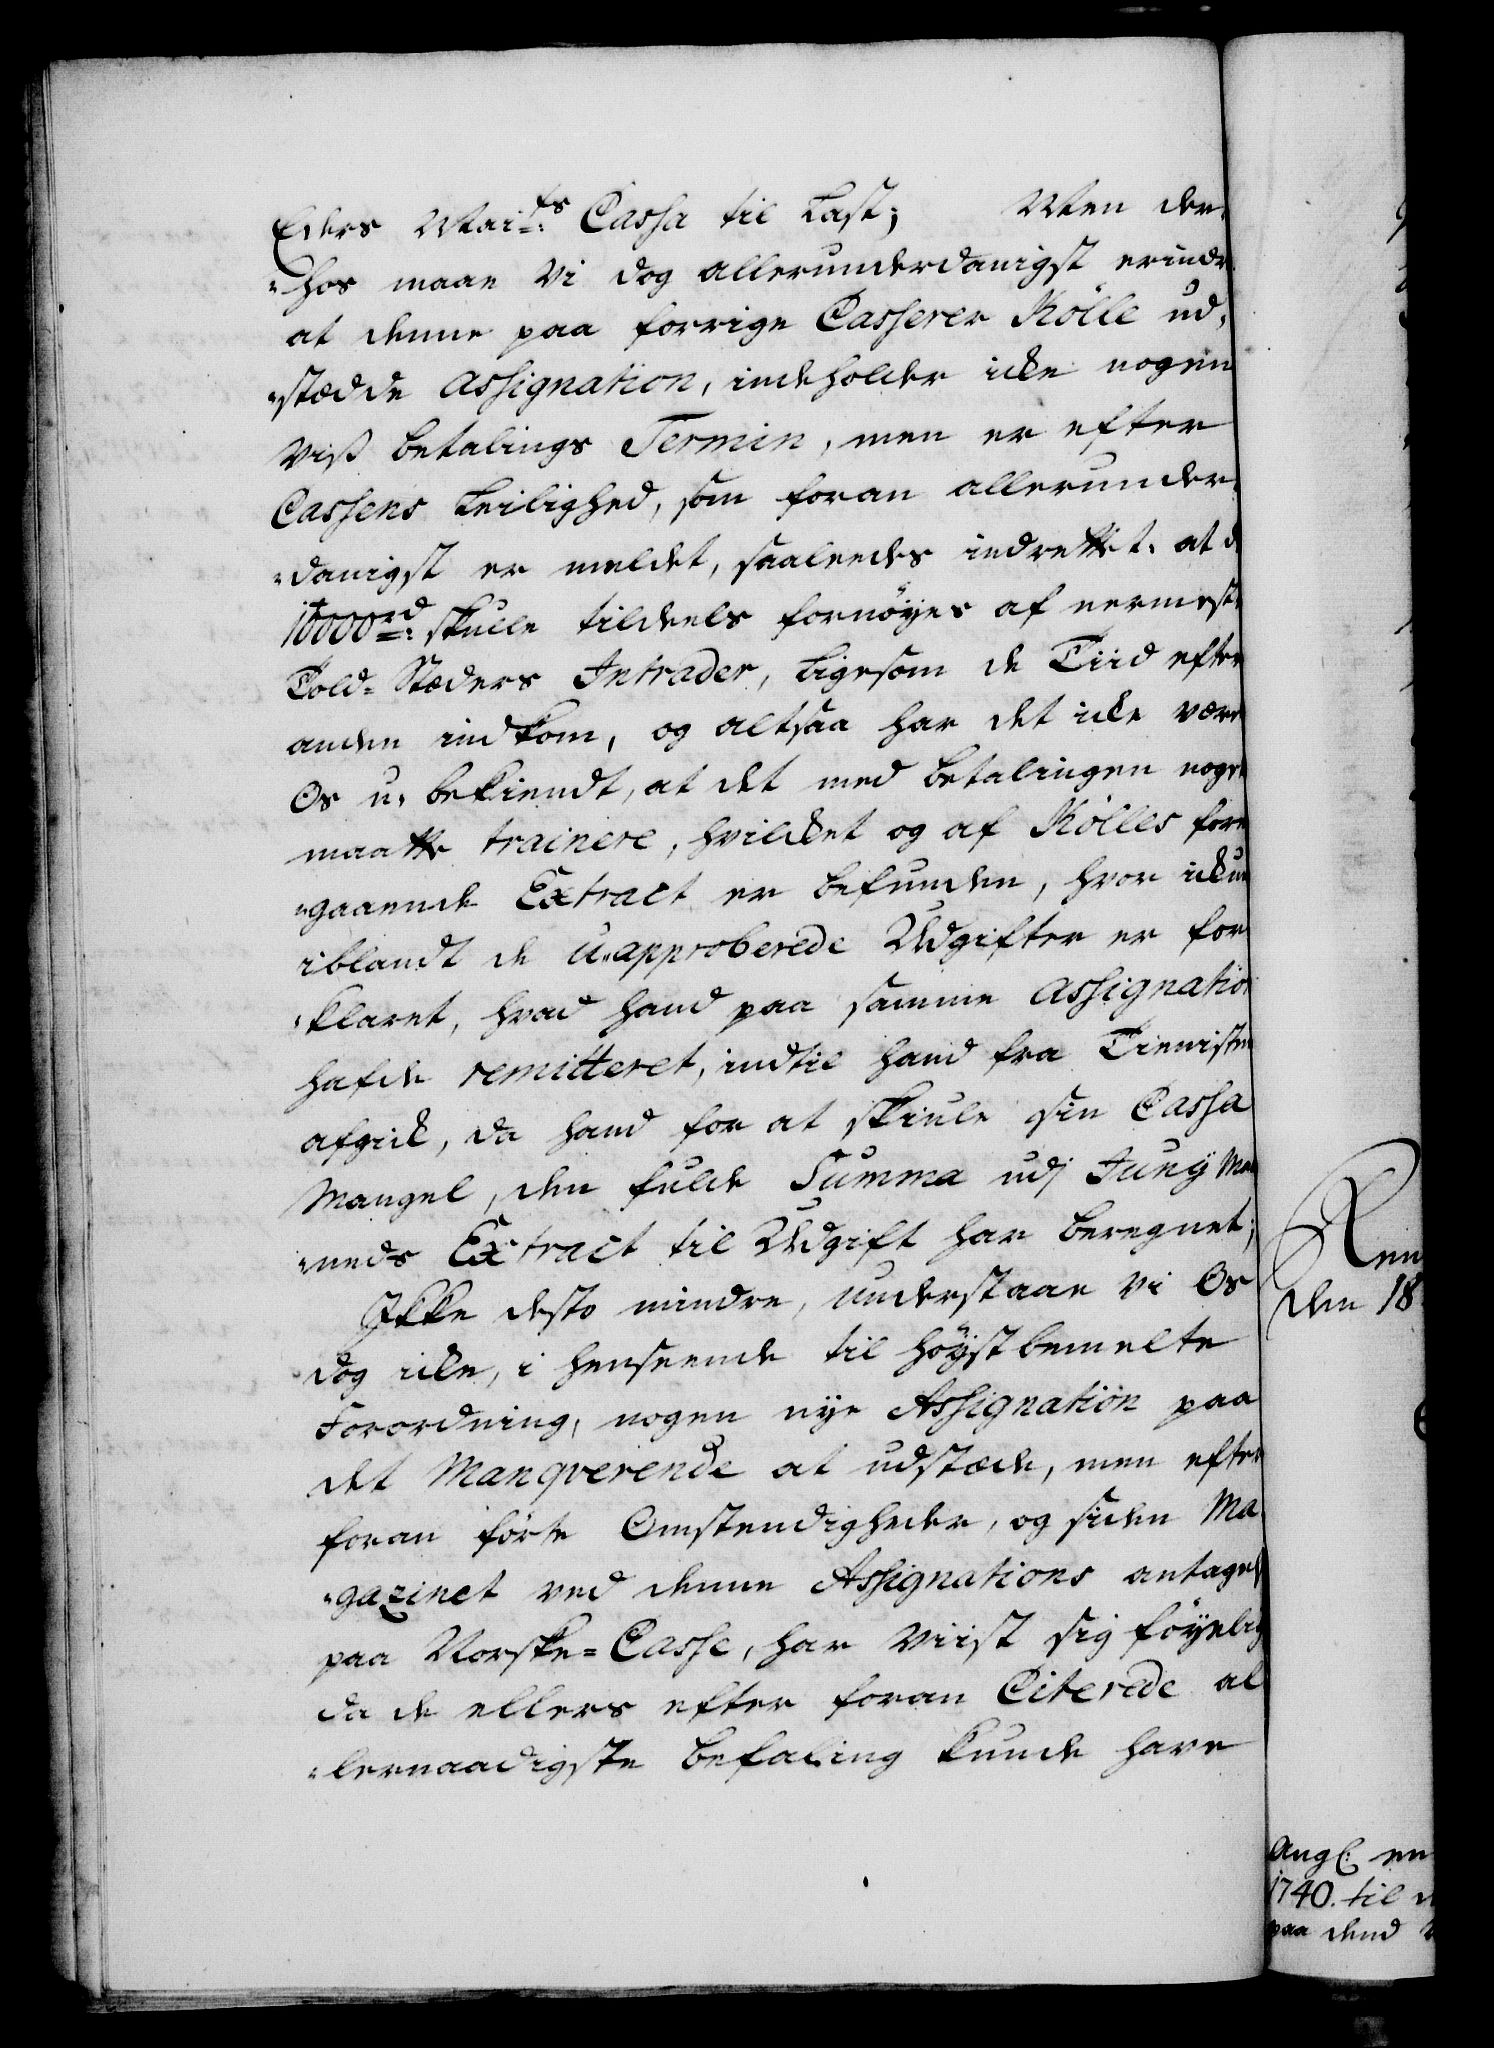 Eders Mai:ts Cassa til Last; Men der,
„hos maae Vi dog allerunderdanigst erindr
at denne paa forrige Casserer Kölle ud,
„stædde Assignation, indeholder icke nogen
Viss betalings Termin, men er efter
Cassens Leilighed, som foran allerunder,
„danigst er meldet, saaledes indrettet, at d
10000 rd: skulle tildeels fornöyes af nermest
Told-Stæders Intrader, ligesom de Tiid efter
anden indkom, og altsaa har det icke være
Os u-bekiendt, at det med betalingen noget
maatte trainere, hvilcket og af Kölles fore
„gaaende Extract er befunden, hvor ickun
iblandt de U-approberede Udgifter er for
„klaret, hvad hand paa samme Assignation
hafde remitteret, indtil hand fra Tienisten
afgick, da hand for at skiule sin Cassa
Mangel, den fulde Summa udj Junij Maa
„neds Extract til Udgift har beregnet;
Ikke desto mindre, understaae Vi Os
dog icke, i henseende til höystbemelte
Forordning, nogen nye Assignation paa
det Manqverende at udstæde, men efter
foran förte Omstendigheder, og siden Ma
„gazinet ved denne Assignations antagel
paa Norske-Casse, har Viist sig föyelig
da de ellers efter foran Citerede al
„lernaadigste befaling kunde have
Ren
den 18
Angl: en
1740. til
paa dend